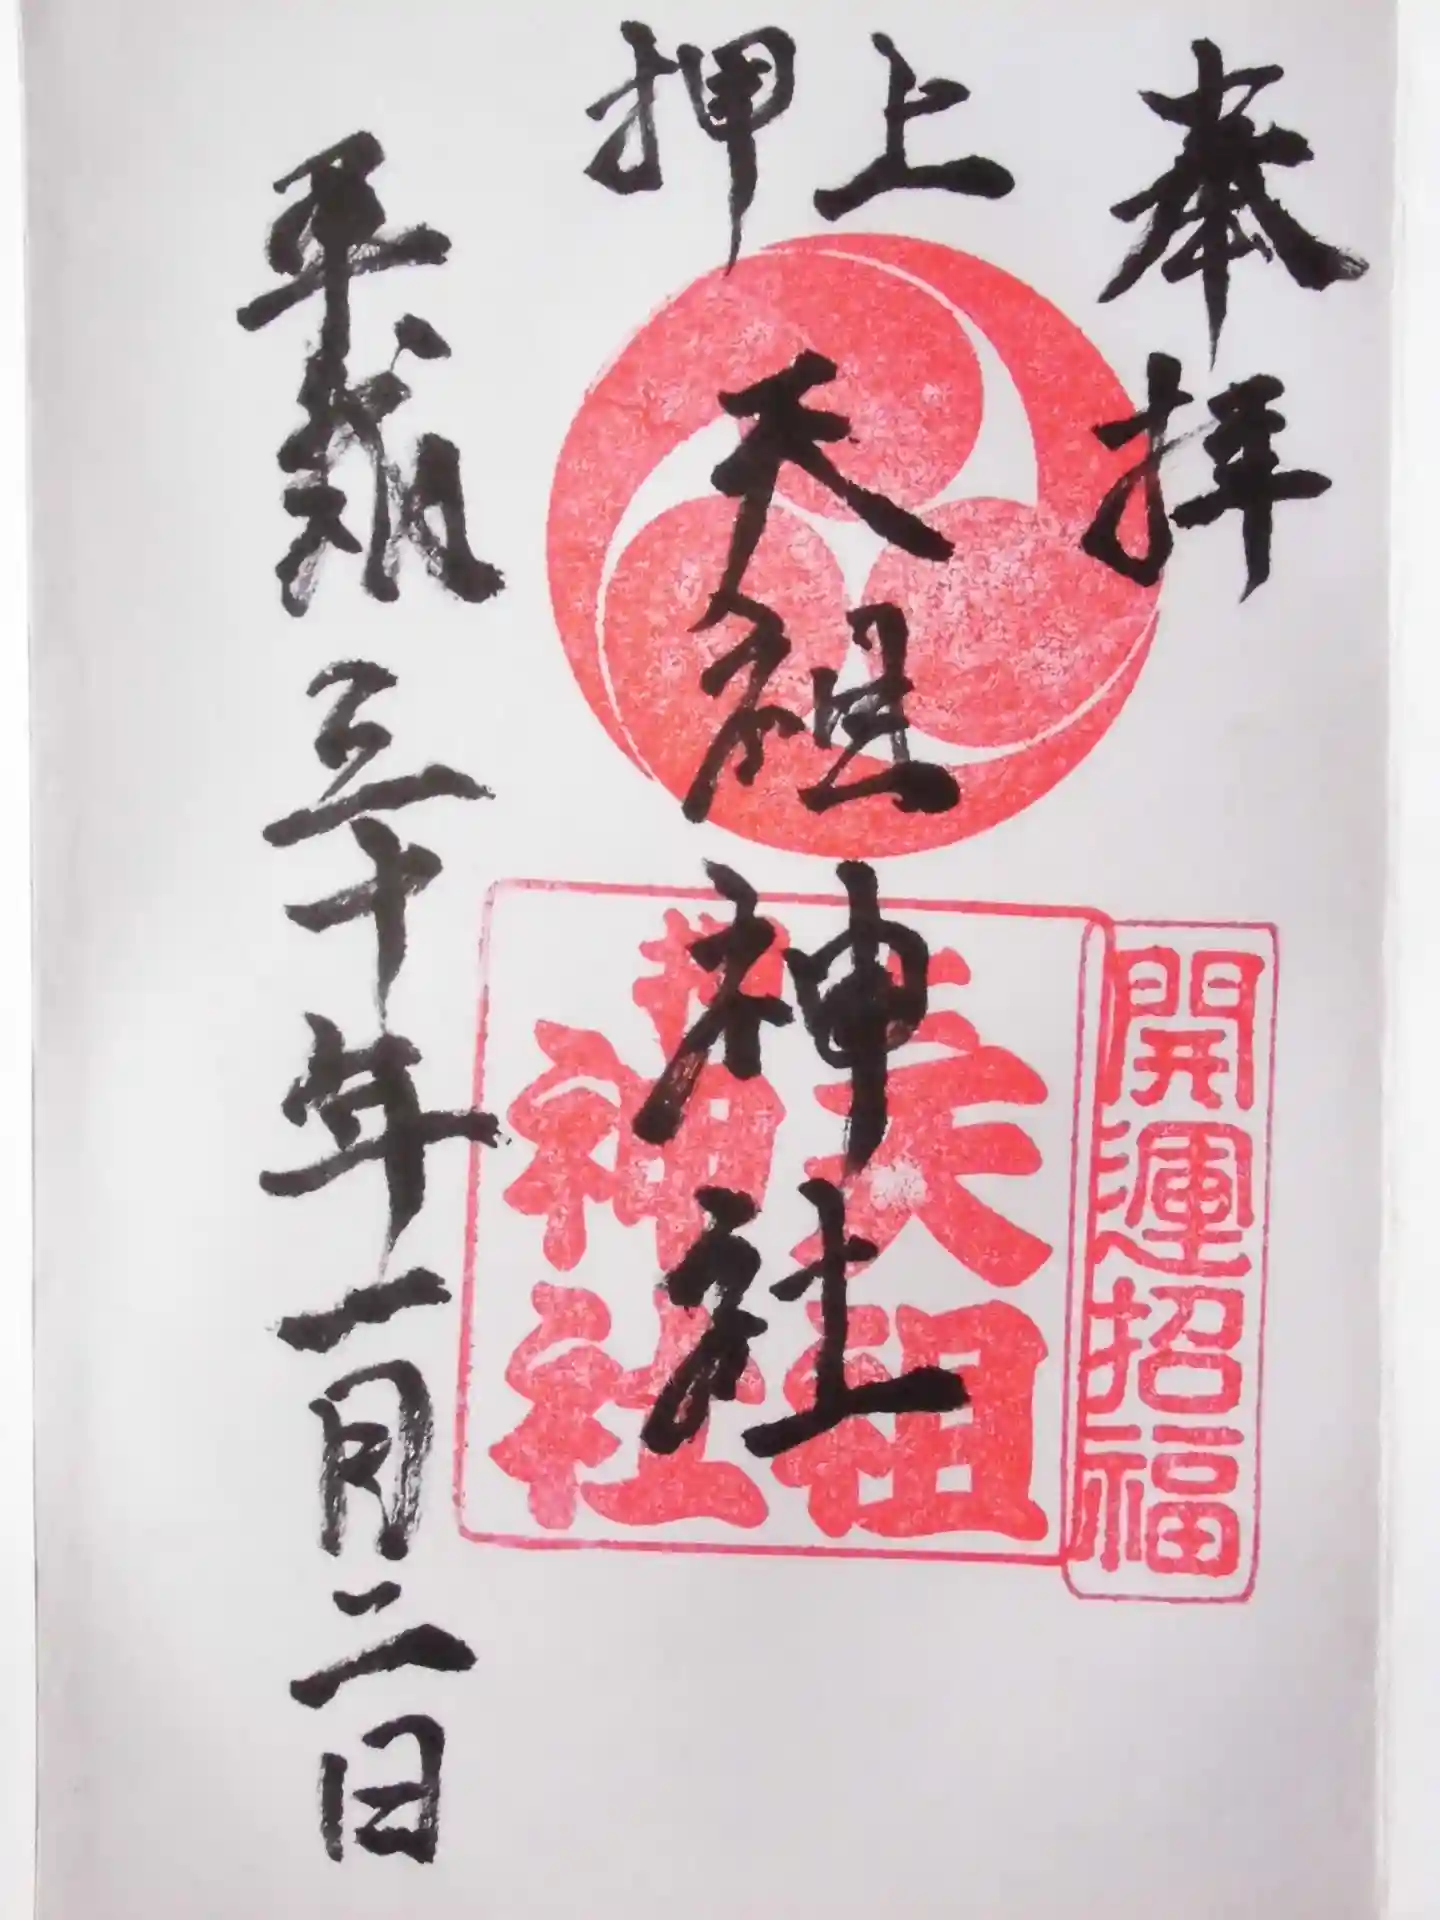 奉拝
押上
天祖神社
平成三十年一月二日
開運招福
押上
天祖
神社